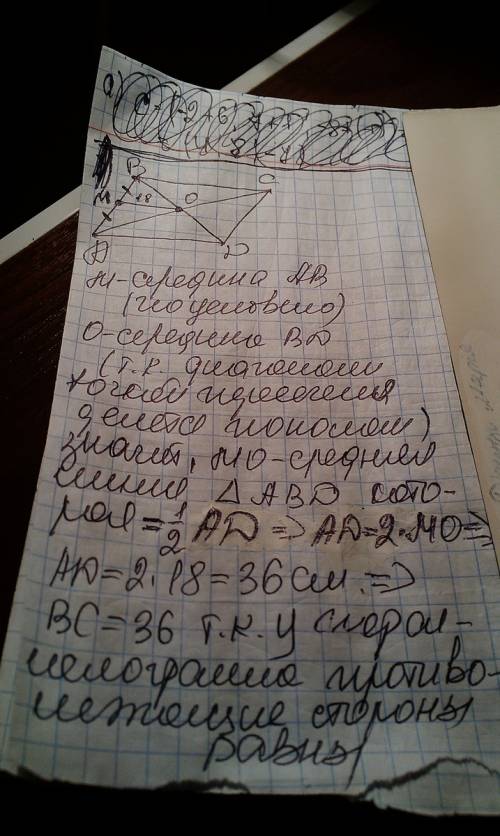 а)
B
C
M
18
O
A
D
М-средина АВ
(по условию)
О-середина BD
(т.к. диагонали
точкой пересечения
делятся пополам)
значит, МО-средняя
линия △ABD кото-
рая = 1/2 AD => AD=2·MO=>
AD=2·18=36см =>
BC=36 т.к. у
противо-
лежащие стороны
равны